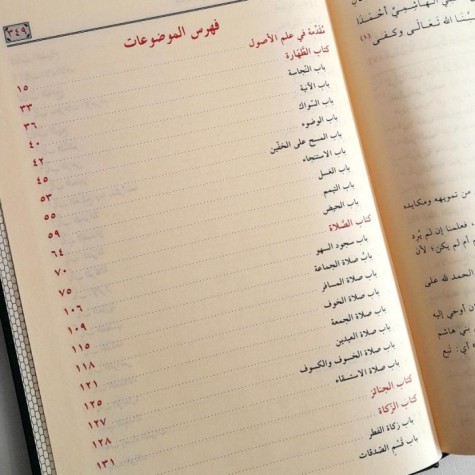 ٣٤٩
فهرس الموضوعات
مُقَدِّمَة في علم الأصول
كتاب الطَّهَارة
باب النّجاسة
باب الآنية
باب السّواك
باب الوضوء
باب المسح على الخفّين
باب الاستنجاء
باب الغسل
باب التيمم
باب الحيض
كتاب الصَّلاة
باب سجود السهو
بابُ صلاة الجماعة
باب صلاة المسافر
باب صلاة الخوف
باب صلاة الجمعة
باب صلاة العيدين
باب صلاة الخسوف والكسوف
باب صلاة الاستسقاء
كتاب الجنائز
كتاب الزّكاة
باب زكاة الفطر
باب قَسْم الصّدقات
١٥
٣٣
٣٦
٤٠
٤٢
٤٥
٥٣
٥٥
٥٩
٦٤
٧٠
٧٥
١٠٦
١٠٩
١١٥
١١٨
١٢١
١٢٥
١٢٧
١٢٨
١٣١
الله تَعَالَى وكفى (١)
من تمويهه ومكايده
فعلمنا إن لم يُرد
أم لم يكن؛ لأن
الحمد لله على
أن أوحي إليه
ني هاشم
أي: تَبع